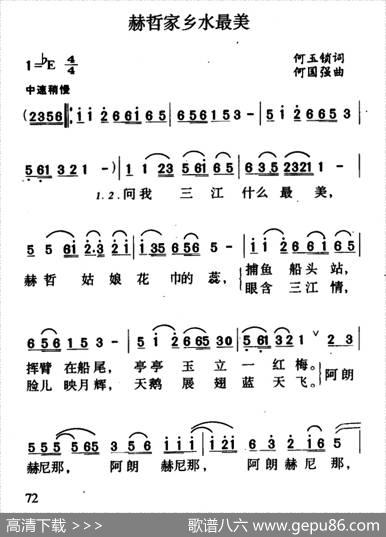 赫哲家乡水最美
1=♭E 4/4
何玉锁词
何国强曲
中速稍慢
(2356 ‖: i·i 2 6616 5 | 5356153 - | 5 i 2 6653
5 61 3 2 1 - ) | 1 1 23 5 61 65 | 6 3.5 2321 - |
1.2.问我 三江什么最美,
5 5 61 2·3 21 | 1 35 656 5 - | i i 26 165
赫哲姑娘花巾的蕊, 捕鱼船头站,
眼含三江情,
656 153 - | 5 i 2 6665 30 | 5 61 321 ∨ 2 3
挥臂在船尾, 亭亭玉立一红梅。 阿朗
脸儿映月辉, 天鹅展翅蓝天飞。
555 565 | 356 iii | i 2i 6 3 2 35 |
赫尼那, 阿朗赫尼那, 阿朗赫尼那,
72
高清下载 >>>
歌谱八六 www.gepu86.com